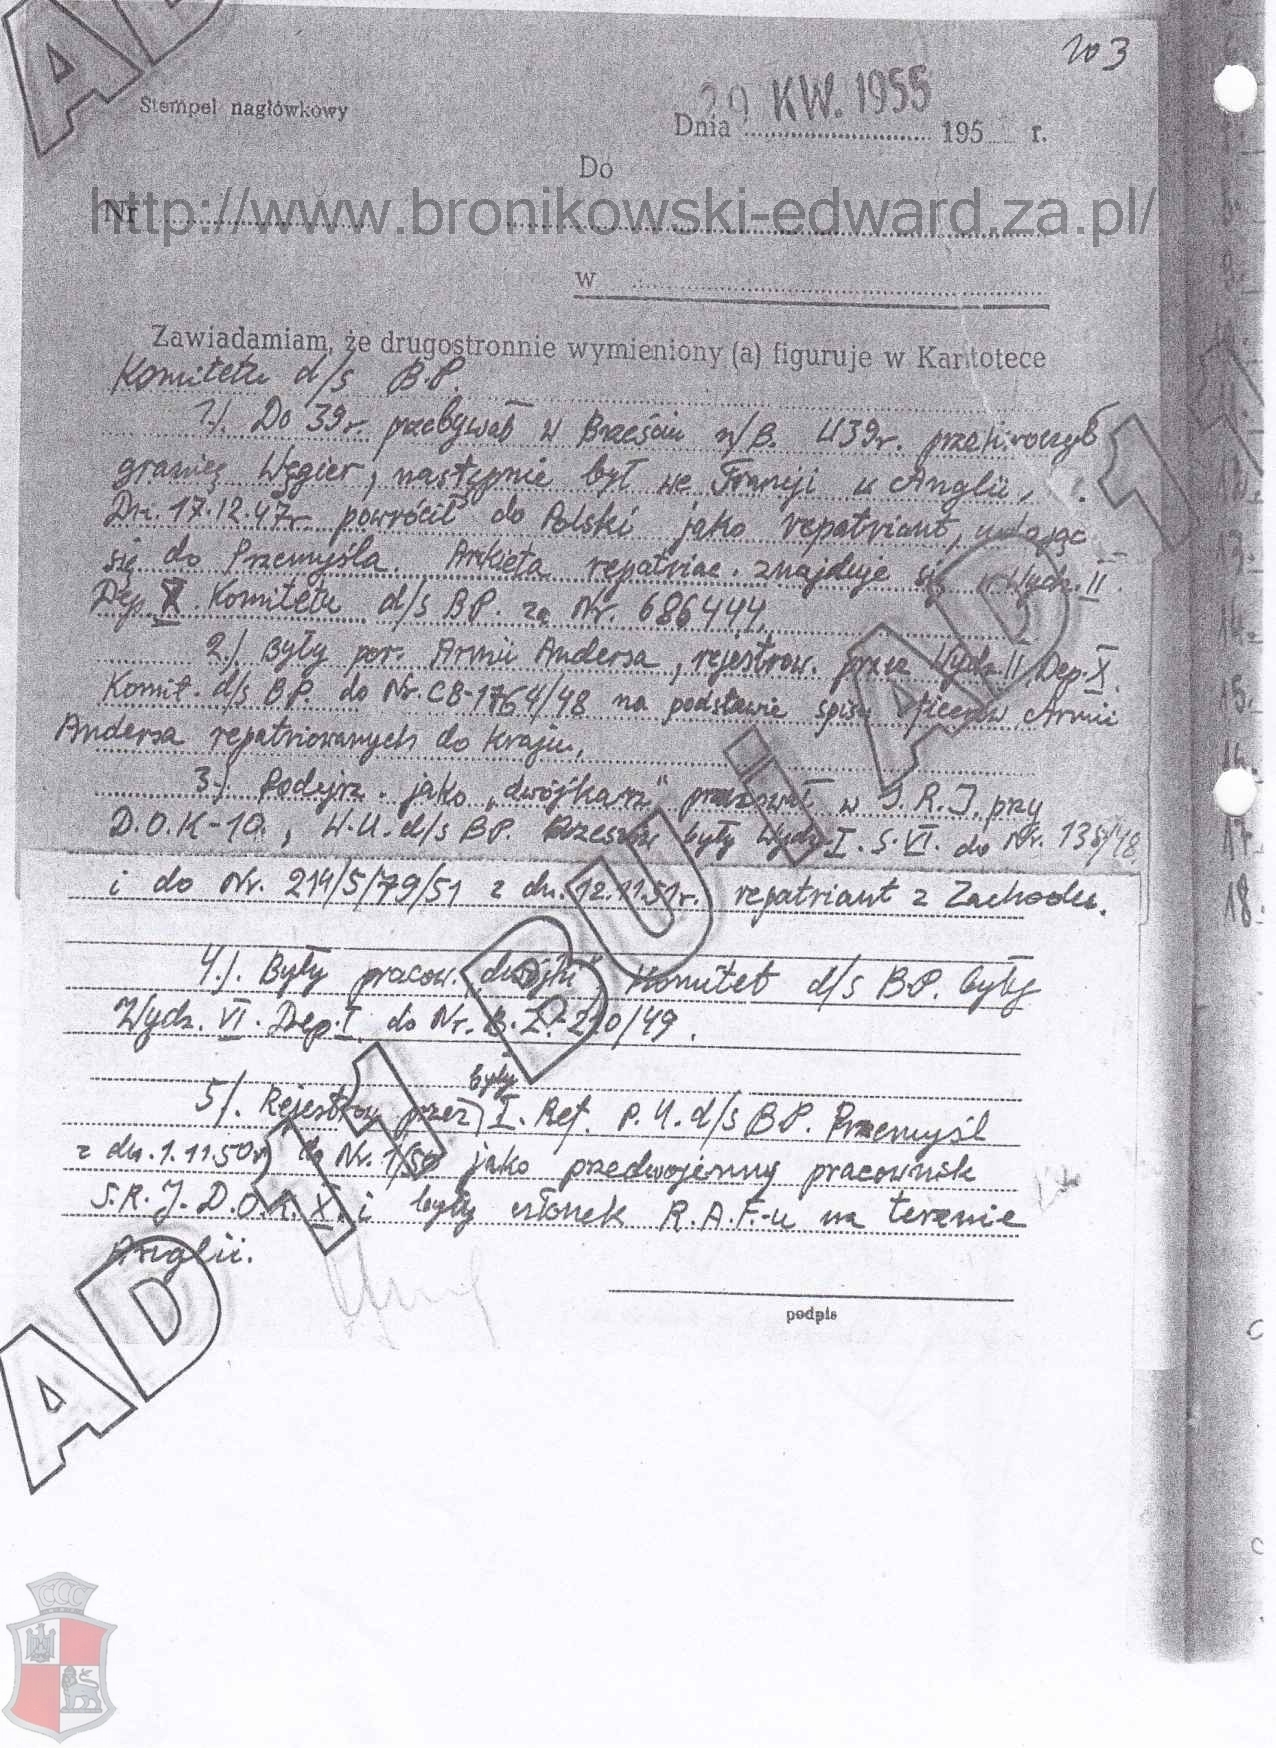 203
Stempel nagłówkowy
29 KW. 1955
Dnia 195 r.
Do
http://www.bronikowski-edward.za.pl/
Nr
w
Zawiadamiam, że drugostronnie wymieniony (a) figuruje w Kartotece
Komitetu d/s B.P.
1./. Do 39r. przebywał w Brześciu n/B. W 39r. przekroczył
granicę Węgier, następnie był we Francji i Anglii,
Dn. 17.12.47r powrócił do Polski jako repatriant, udając
się do Przemyśla. Ankieta repatriac. znajduje się w Wydz. II
Dep. X Komitetu d/s BP. za Nr. 686444.
2./ Były por. Armii Andersa, rejestrow. przez Wydz. II Dep. X.
Komit. d/s BP. do Nr. CB-1764/48 na podstawie spisu oficerów Armii
Andersa repatriowanych do kraju.
3./ Podejrz. jako „dwójkarz" pracował w S.R.I. przy
D.O.K-10., W.U.d/s BP. Rzeszów były Wydz. I. S. VI. do Nr. 135/48
i do Nr. 214/5/79/51 z dn. 12.11.51r. repatriant z Zachodu.
4./. Były pracow. „dwójki" Komitet d/s B.P. były
Wydz. VI. Dep. I do Nr. B.Z.-210/49.
były
5/. Rejestrow przez I. Ref. P.U.d/s B.P. Przemyśl
z dn. 1.11.50r do Nr. 1/50 jako przedwojenny pracownik
S.R.J. D.O.K. X. i były członek R.A.F.-u na terenie
Anglii.
podpis
AD 11 BU i AD 11
AD
CCC
13.
14.
15.
17.
18.